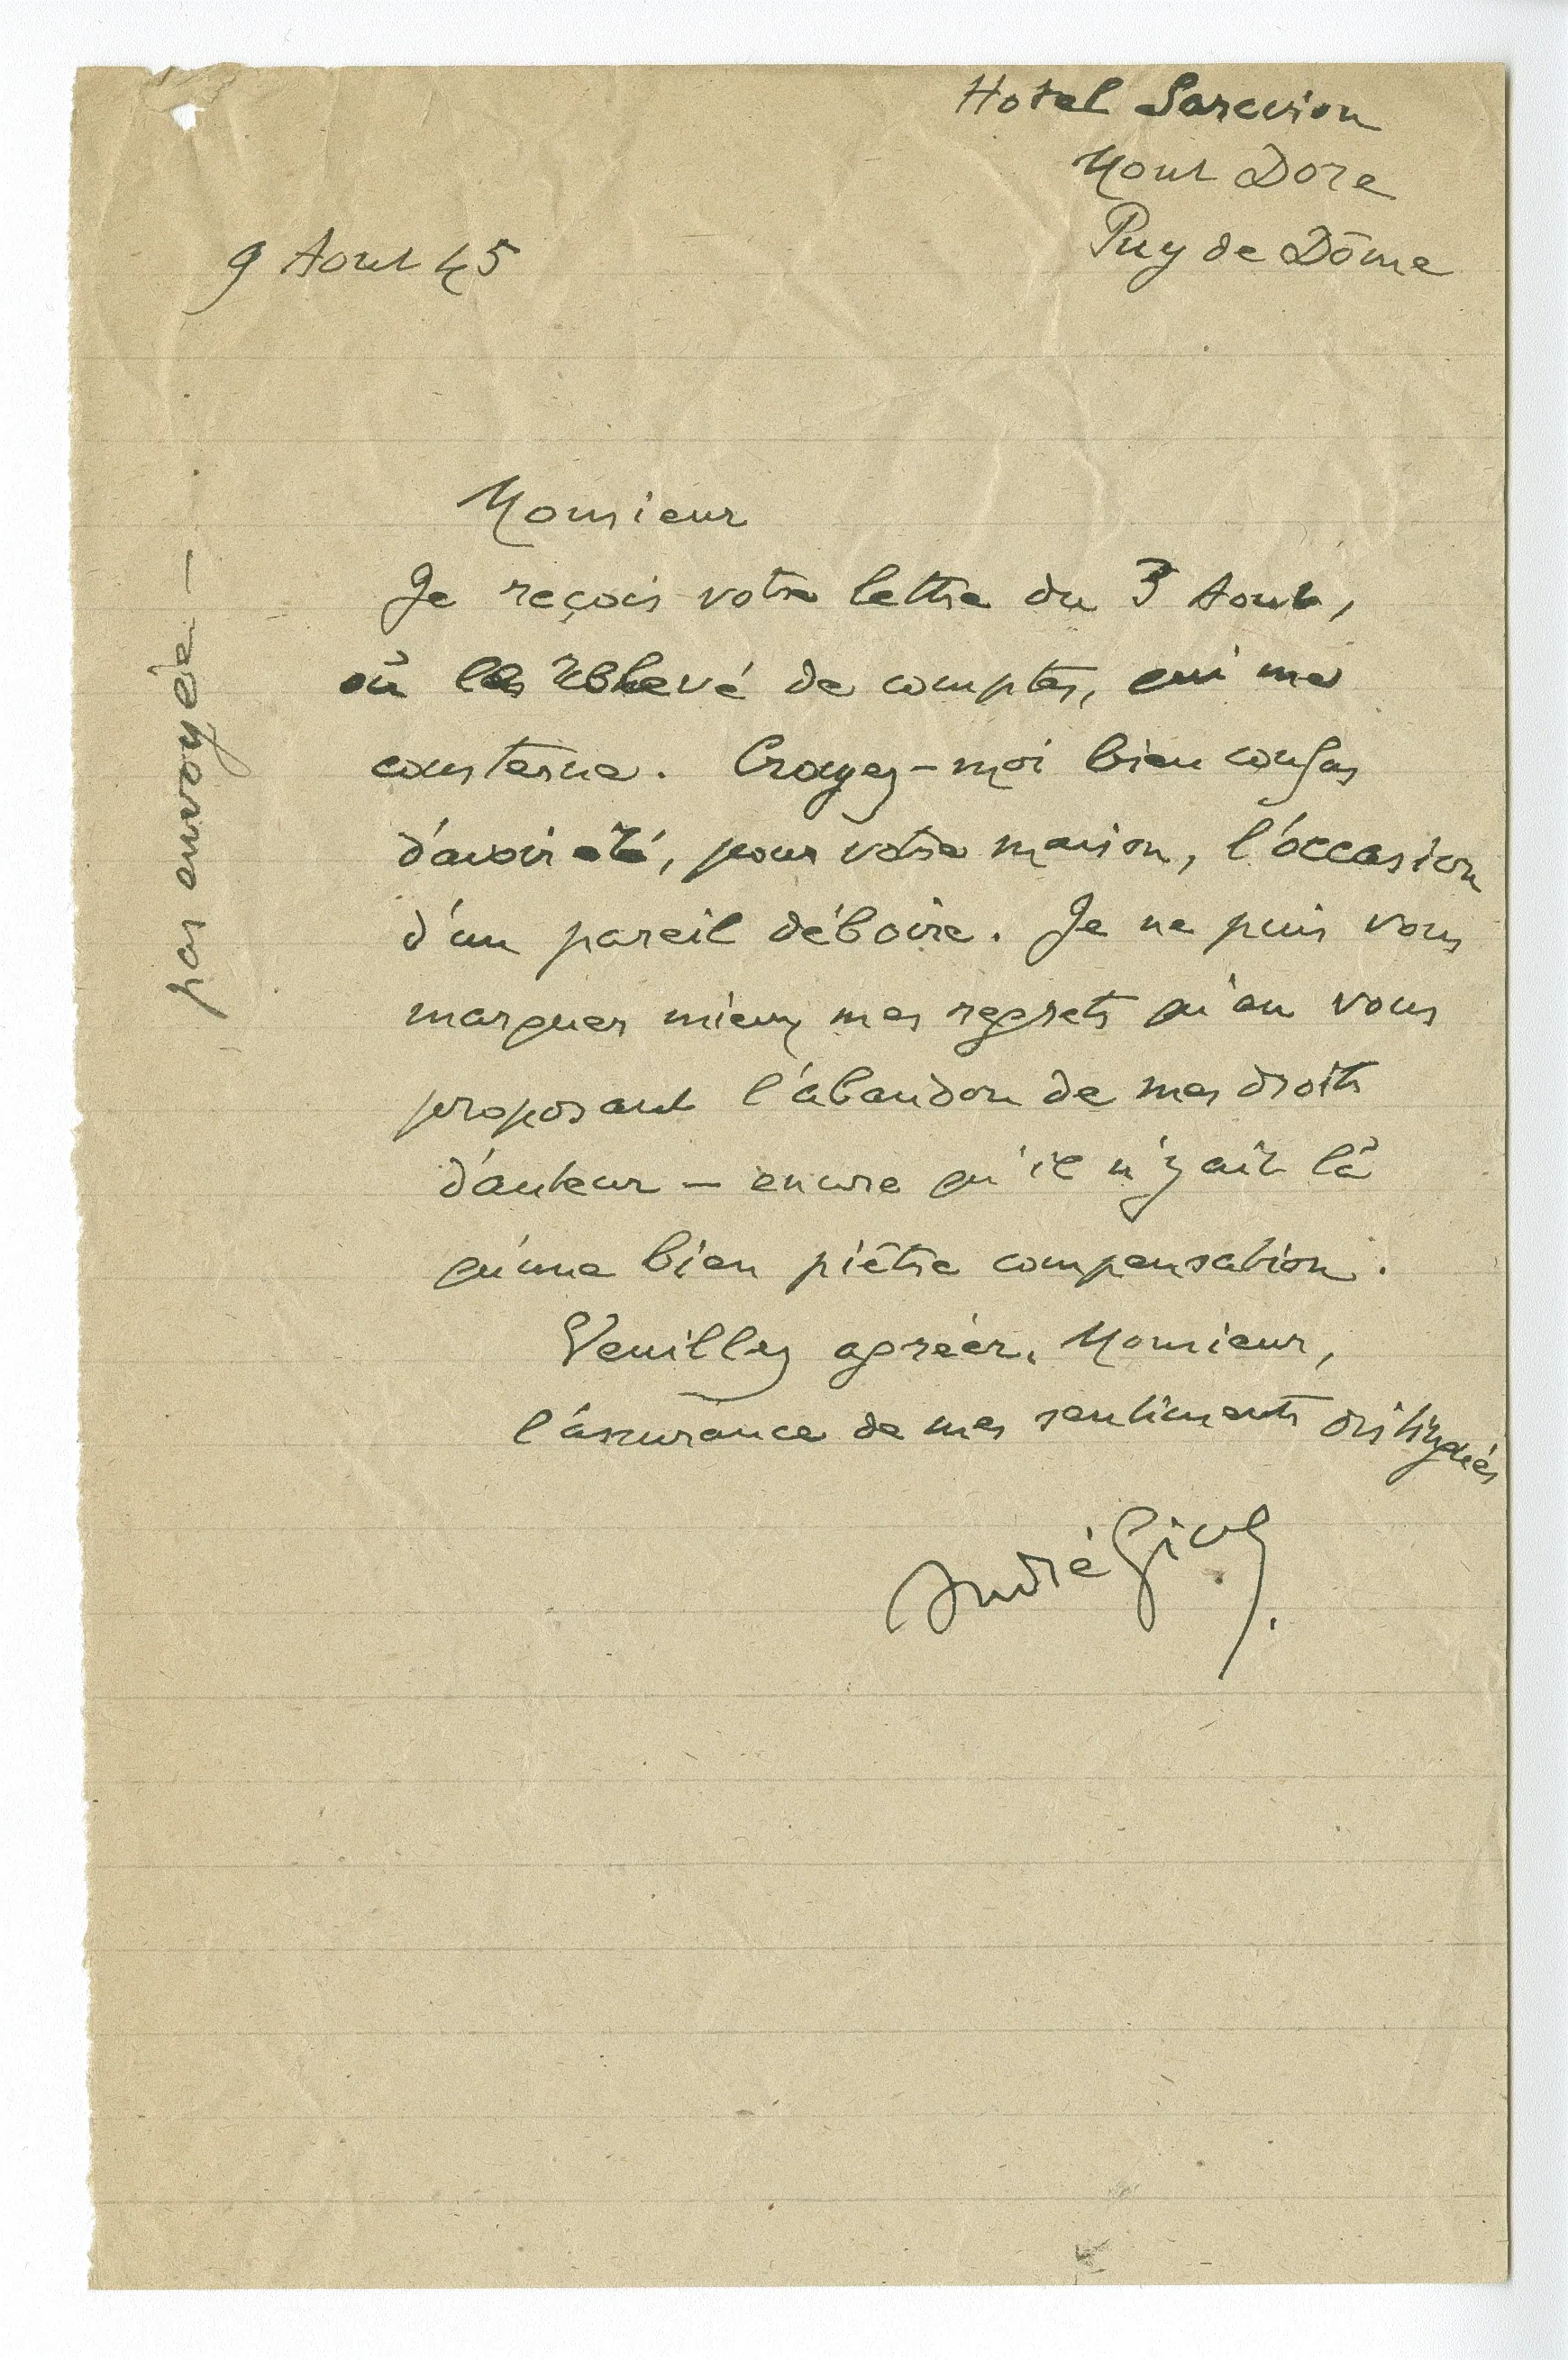 Hotel Sarciron
Mont Dore
Puy de Dôme
9 Aout 45
pas envoyée —
Monsieur
Je reçois votre lettre du 3 Aout,
où le relevé de comptes, qui me
consterne. Croyez-moi bien confus
d'avoir été, pour votre maison, l'occasion
d'un pareil déboire. Je ne puis vous
marquer mieux mes regrets qu'en vous
proposant l'abandon de mes droits
d'auteur — encore qu'il n'y ait là
qu'une bien piètre compensation.
Veuillez agréer, Monsieur,
l'assurance de mes sentiments distingués
André Gide.